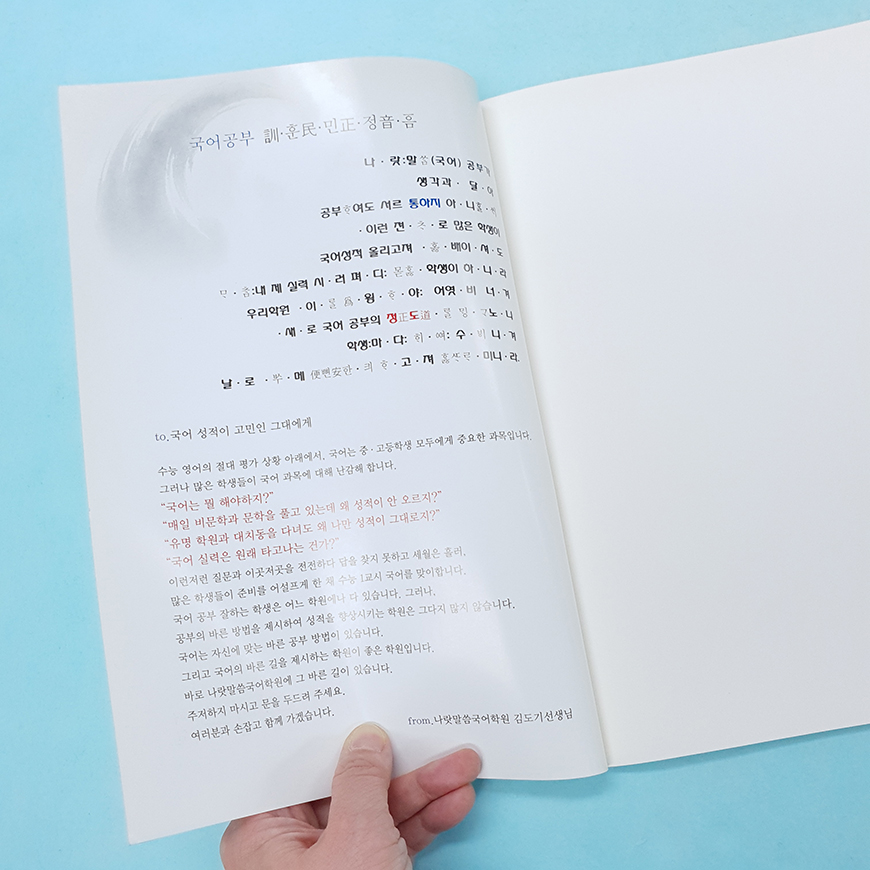 국어공부 訓·훈民·민正·정音·음
나·랏:말씀(국어) 공부가
생각과· 달·아
공부ᄒᆞ여도 서르 통하지 아·니
·이런 젼·ᄎᆞ·로 많은 학생이
국어성적 올리고져 ·홇·배이·셔·도
ᄆᆞ·ᄎᆞᆷ:내 제 실력 시·러 펴·디: 몯홇·학생이 아·니·라
우리학원 ·이·ᄅᆞᆯ 爲·윙·ᄒᆞ·야: 어엿·비 너·겨
·새·로 국어 공부의 정正도道·ᄅᆞᆯ ᄆᆡᇰ·ᄀᆞ노·니
학생:마·다: ᄒᆡ·ᅇᅧ: 수·ᄫᅵ 니·겨
날·로 ·ᄡᅮ·메 便뼌安한·킈 ᄒᆞ·고·져 홇ᄯᆞᄅᆞ·미니·라.
to.국어 성적이 고민인 그대에게
수능 영어의 절대 평가 상황 아래에서, 국어는 중·고등학생 모두에게 중요한 과목입니다.
그러나 많은 학생들이 국어 과목에 대해 난감해 합니다.
“국어는 뭘 해야하지?”
“매일 비문학과 문학을 풀고 있는데 왜 성적이 안 오르지?”
“유명 학원과 대치동을 다녀도 왜 나만 성적이 그대로지?”
“국어 실력은 원래 타고나는 건가?”
이런저런 질문과 이곳저곳을 전전하다 답을 찾지 못하고 세월은 흘러,
많은 학생들이 준비를 어설프게 한 채 수능 1교시 국어를 맞이합니다.
국어 공부 잘하는 학생은 어느 학원에나 다 있습니다. 그러나,
공부의 바른 방법을 제시하여 성적을 향상시키는 학원은 그다지 많지 않습니다.
국어는 자신에 맞는 바른 공부 방법이 있습니다.
그리고 국어의 바른 길을 제시하는 학원이 좋은 학원입니다.
바로 나랏말씀국어학원에 그 바른 길이 있습니다.
주저하지 마시고 문을 두드려 주세요.
여러분과 손잡고 함께 가겠습니다.
from.나랏말씀국어학원 김도기선생님